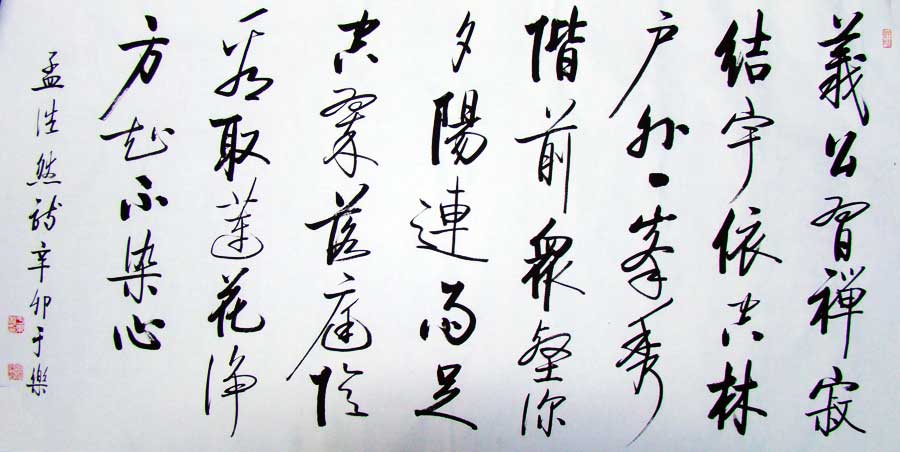 義公習禪寂
結宇依空林
户外一峯秀
階前衆壑深
夕陽連雨足
空翠落庭陰
看取蓮花淨
方知不染心
孟浩然詩辛卯于樂